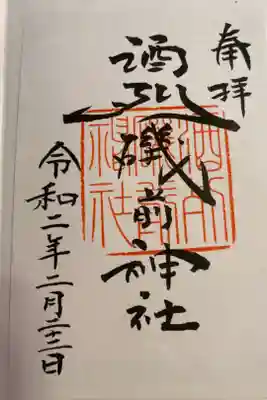 奉拝
酒列磯前神社
酒列磯前神社
令和二年二月二十二日